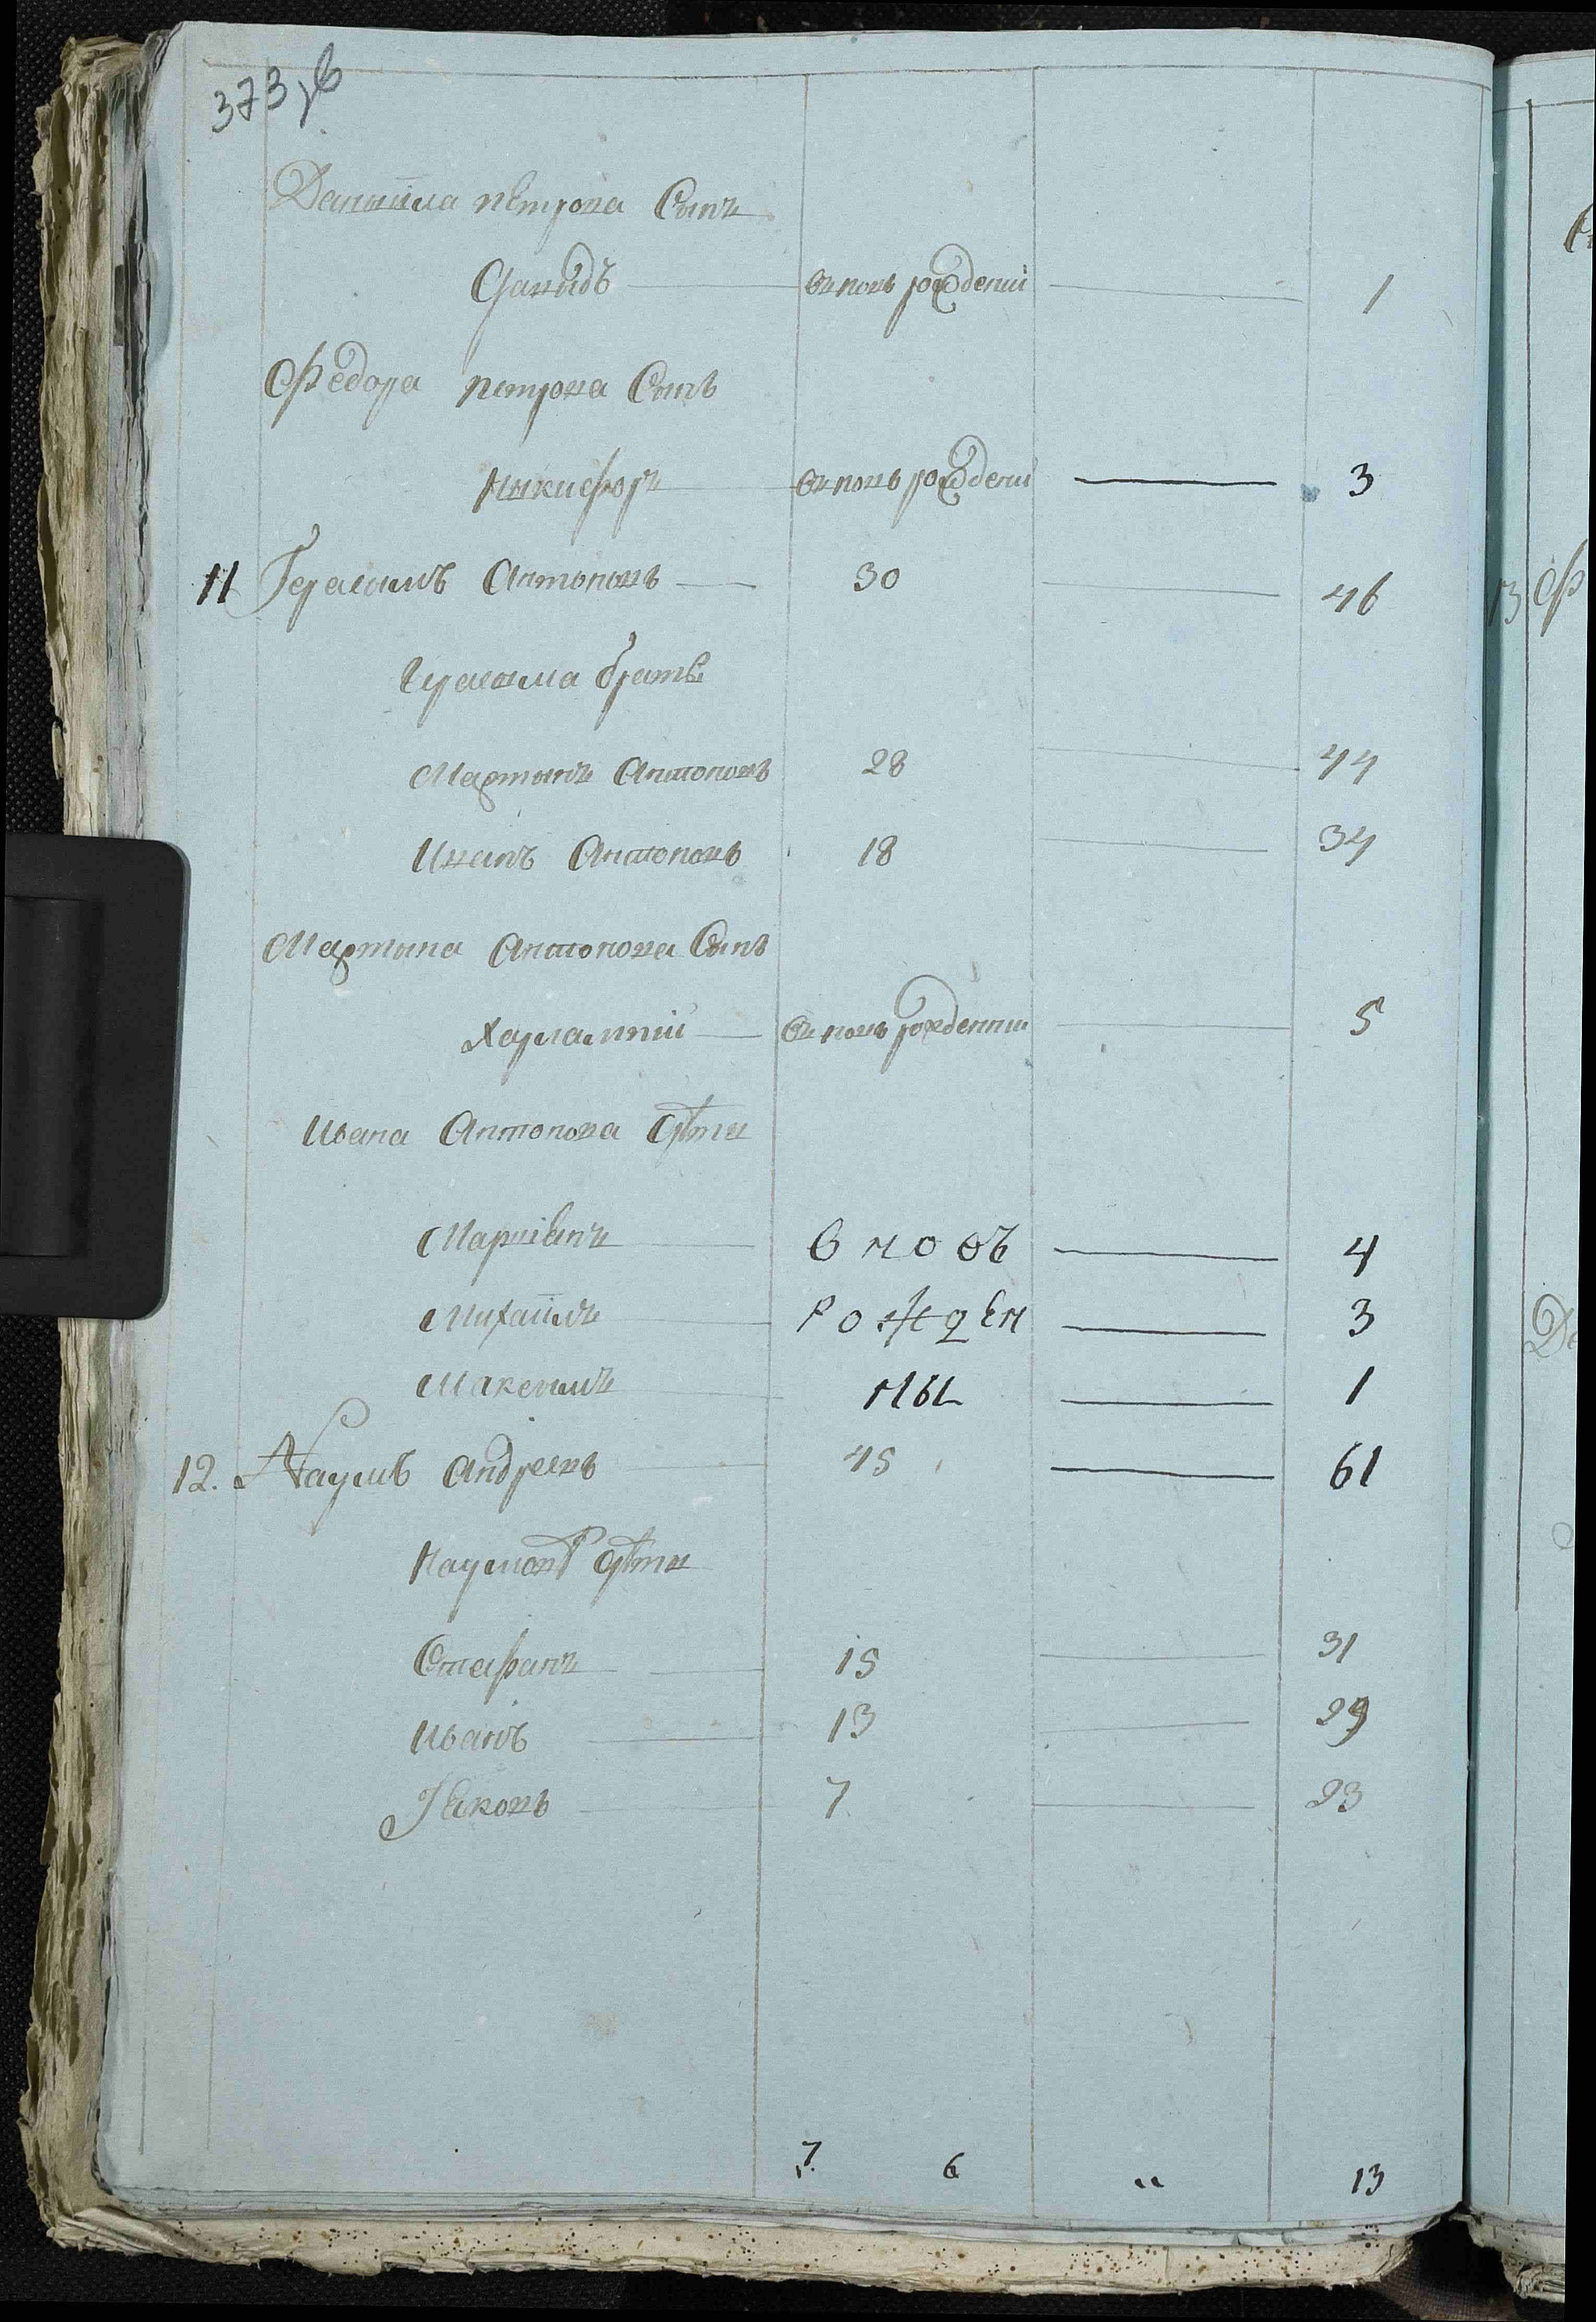 373 об
Даныила петрова Сынъ
Давыдъ вновь рожденiй 1
Федора петрова Сынъ
Никифоръ вновь рожденiй 3
11 Герасимъ Антоновъ 30 46
Герасыма братья
Мартынъ Антоновъ 28 44
Иванъ Антоновъ 18 34
Мартына Антонова Сынъ
Харлампiй вновь рожденный 5
Ивана Антонова Дѣти
Маркiянъ вновъ 4
Михаилъ рожден 3
Максимъ ны 1
12. Наумъ Андреевъ 45 61
Наумовы дѣти
Стефанъ 15 31
Иванъ 13 29
Яковъ 7 23
7 6 " 13
13 Ф